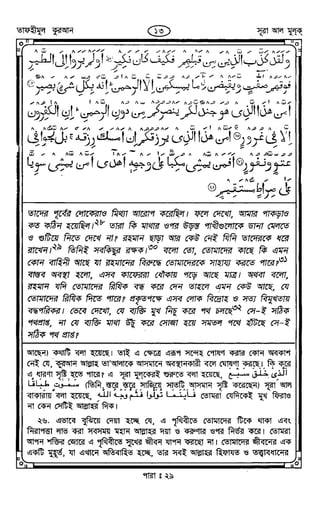 তাফহীমুল কুরআন
১৩
সূরা আল মুলক
وَلَقَدْ كَذَّبَ الَّذِيْنَ مِنْ قَبْلِهِمْ فَكَيْفَ كَانَ نَكِيْرِ ﴿١٨﴾ اَوَلَمْ يَرَوْا اِلَى الطَّيْرِ
فَوْقَهُمْ صٰٓفّٰتٍ وَّيَقْبِضْنَ ؔۘ مَا يُمْسِكُهُنَّ اِلَّا الرَّحْمٰنُ ؕ اِنَّهٗ بِكُلِّ شَيْءٍۭ بَصِيْرٌ ﴿١٩﴾
اَمَّنْ هٰذَا الَّذِيْ هُوَ جُنْدٌ لَّكُمْ يَنْصُرُكُمْ مِّنْ دُوْنِ الرَّحْمٰنِ ؕ اِنِ الْكٰفِرُوْنَ
اِلَّا فِيْ غُرُوْرٍ ﴿٢٠﴾ اَمَّنْ هٰذَا الَّذِيْ يَرْزُقُكُمْ اِنْ اَمْسَكَ رِزْقَهٗ ۚ بَلْ لَّجُّوْا فِيْ
عُتُوٍّ وَّنُفُوْرٍ ﴿٢١﴾ اَفَمَنْ يَّمْشِيْ مُكِبًّا عَلٰى وَجْهِهٖٓ اَهْدٰٓى اَمَّنْ يَّمْشِيْ سَوِيًّا
عَلٰى صِرَاطٍ مُّسْتَقِيْمٍ ﴿٢٢﴾
তাদের পূর্বের লোকেরাও মিথ্যা আরোপ করেছিল। ফলে দেখো, আমার পাকড়াও
কত কঠিন হয়েছিল।২৮ তারা কি মাথার ওপর উড়ন্ত পাখীগুলোকে ডানা মেলতে
ও গুটিয়ে নিতে দেখে না? রহমান ছাড়া আর কেউ নেই যিনি তাদেরকে ধরে
রাখেন।২৯ তিনিই সবকিছুর রক্ষক।৩০ বলো তো, তোমাদের কাছে কি এমন
কোন বাহিনী আছে যা রহমানের বিরুদ্ধে তোমাদেরকে সাহায্য করতে পারে?৩১
বাস্তব অবস্থা হলো, এসব কাফেররা ধোঁকায় পড়ে আছে মাত্র। অথবা বলো,
রহমান যদি তোমাদের রিযিক বন্ধ করে দেন তাহলে এমন কেউ আছে, যে
তোমাদের রিযিক দিতে পারে? প্রকৃতপক্ষে এসব লোক বিদ্রোহ ও সত্য বিমুখতায়
বদ্ধপরিকর। ভেবে দেখো, যে ব্যক্তি মুখ নিচু করে পথ চলছে৩২ সে-ই সঠিক
পথপ্রাপ্ত, না যে ব্যক্তি মাথা উঁচু করে সোজা হয়ে সমতল পথে হাঁটছে সে-ই
সঠিক পথ প্রাপ্ত?
আছেন) কথাটি বলা হয়েছে। তাই এ ক্ষেত্রে এরূপ সন্দেহ পোষণ করার কোন অবকাশ
নেই যে, কুরআন আল্লাহ তা'আলাকে আসমানে অবস্থানকারী বলে ঘোষণা করছে। কি করে
এ ধারণা সৃষ্টি হতে পারে? এ সূরা মূলকেরই শুরুতে বলা হয়েছে, الَّذِىْ خَلَقَ سَبْعَ
سَمٰوٰتٍ طِبَاقًا (তিনি, স্তরে স্তরে সাজিয়ে সাতটি আসমান সৃষ্টি করেছেন) সূরা আল
বাকারায় বলা হয়েছে, فَاَيْنَمَا تُوَلُّوْا فَثَمَّ وَجْهُ اللّٰهِ তোমরা যেদিকেই মুখ ফিরাও
না কেন সেটিই আল্লাহর দিক।
২৬. এভাবে বুঝিয়ে দেয়া হচ্ছে যে, এ পৃথিবীতে তোমাদের টিকে থাকা এবং
নিরাপত্তা লাভ করা সবসময় মহান আল্লাহর দয়া ও করুণার ওপর নির্ভর করে। তোমরা
আপন শক্তির জোরে এ পৃথিবীতে সুখের জীবন যাপন করছো না। তোমাদের জীবনের এক
একটি মুহূর্ত, যা এখানে অতিবাহিত হচ্ছে, তার সবই আল্লাহর হিফাযত ও তত্ত্বাবধানের
পারা : ২৯